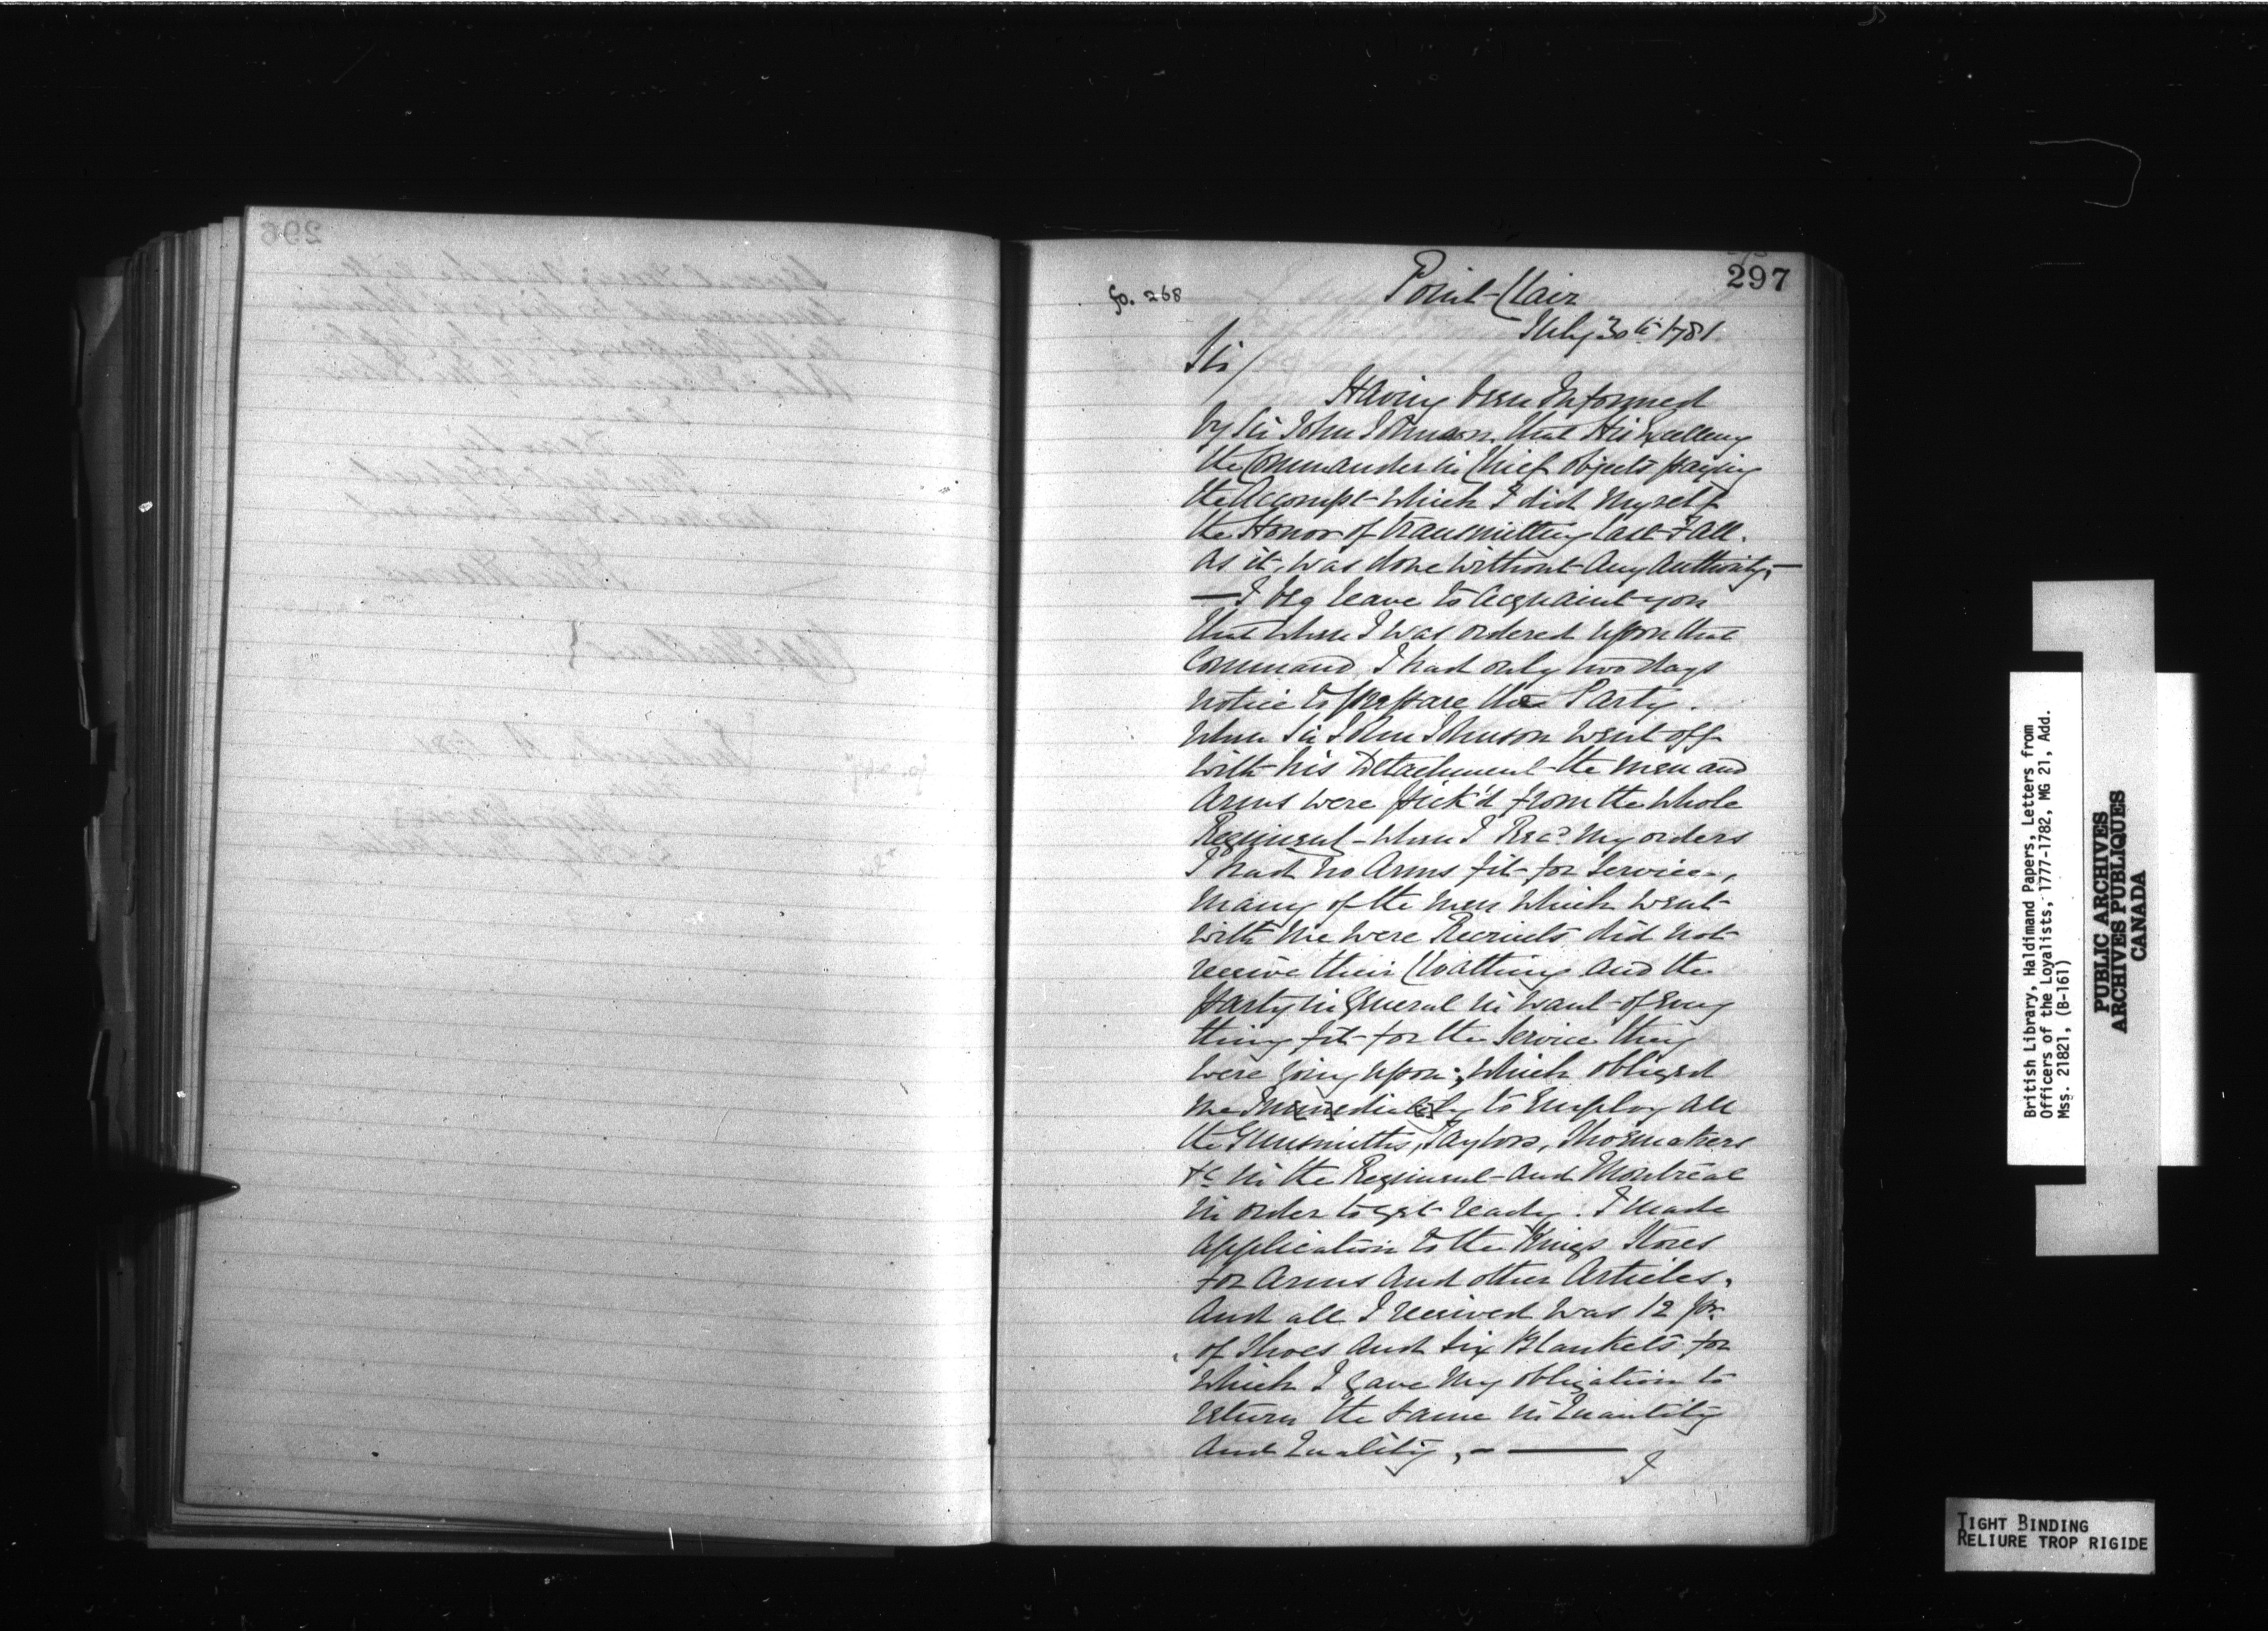 297
fo. 268
Point-Clair
July 30th 1781.
Sir/
Having been Informed
by Sir John Johnson, that His Excellency
the Commander in Chief objects paying
the Accompt which I did myself
the Honor of transmitting last Fall.
as it, was done without any authority,—
—I beg leave to acquaint you
that when I was ordered upon that
Command, I had only two days
notice to prepare the Party.
when Sir John Johnson went off
with his Detachment the men and
arms were pick'd from the whole
Regiment - when I Recd my orders
I had no Arms fit for Service,
many of the men which went
with me were Recruits did not
receive their Cloathing and the
party in General in want of every
thing fit for the Service they
were going upon; which obliged
me Immediately to Employ all
the Gunsmiths, Taylors, Shoemakers
&c in the Regiment and Montreal
in order to get ready. I made
application to the Kings Stores
for Arms and other Articles,
and all I received was 12 pr.
of Shoes and Six Blankets for
which I gave my obligation to
return the same in Quantity
and Quality, - —
I
British Library, Haldimand Papers, Letters from
Officers of the Loyalists, 1777-1782, MG 21, Add.
Mss. 21821, (B-161)
PUBLIC ARCHIVES
ARCHIVES PUBLIQUES
CANADA
TIGHT BINDING
RELIURE TROP RIGIDE